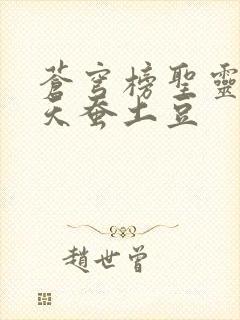 蒼穹榜聖靈
天蚕土豆
趙世曾